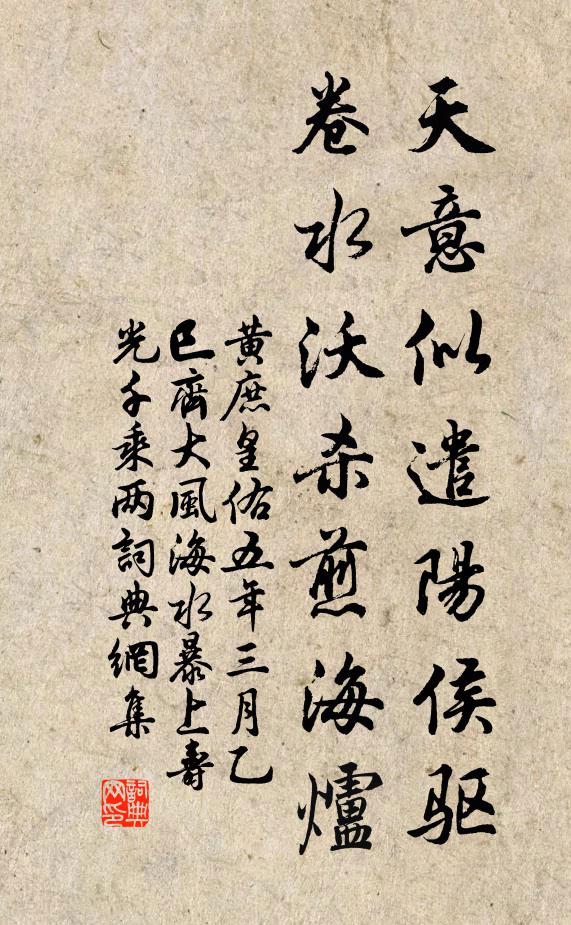 天意似遣陽侯驱
卷水沃杀煎海爐
黄庶皇佑五年三月乙
巳齊大風海水暴上壽
光千乘两詞典網集
詞典网印